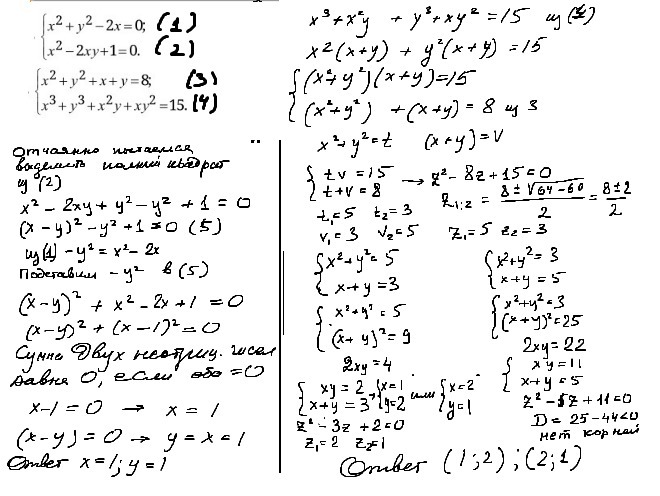 x² + y² − 2x = 0; (1)
x² − 2xy + 1 = 0. (2)
x² + y² + x + y = 8; (3)
x³ + y³ + x²y + xy² = 15. (4)
Отчаянно пытаемся
выделить полный квадрат
из (2)
x² − 2xy + y² − y² + 1 = 0
(x − y)² − y² + 1 = 0 (5)
из (1) − y² = x² − 2x
Подставим − y² в (5)
(x − y)² + x² − 2x + 1 = 0
(x − y)² + (x − 1)² = 0
Сумма двух неотриц. чисел
равна 0, если оба = 0
x − 1 = 0 → x = 1
(x − y) = 0 → y = x = 1
Ответ x = 1; y = 1
x³ + x²y + y³ + xy² = 15 из (4)
x²(x + y) + y²(x + y) = 15
(x² + y²)(x + y) = 15
(x² + y²) + (x + y) = 8 из 3
x² + y² = t (x + y) = v
tv = 15 → z² − 8z + 15 = 0
t + v = 8 z₁;₂ = (8 ± √64 − 60)/2 = (8 ± 2)/2
t₁ = 5 t₂ = 3
v₁ = 3 v₂ = 5 z₁ = 5 z₂ = 3
x² + y² = 5 x² + y² = 3
x + y = 3 x + y = 5
x² + y² = 5 x² + y² = 3
(x + y)² = 9 (x + y)² = 25
2xy = 4 2xy = 22
xy = 2 x = 1 или x = 2 xy = 11
x + y = 3 y = 2 y = 1 x + y = 5
z² − 3z + 2 = 0 z² − 5z + 11 = 0
z₁ = 2 z₂ = 1 D = 25 − 44 < 0
нет корней
Ответ (1; 2); (2; 1)